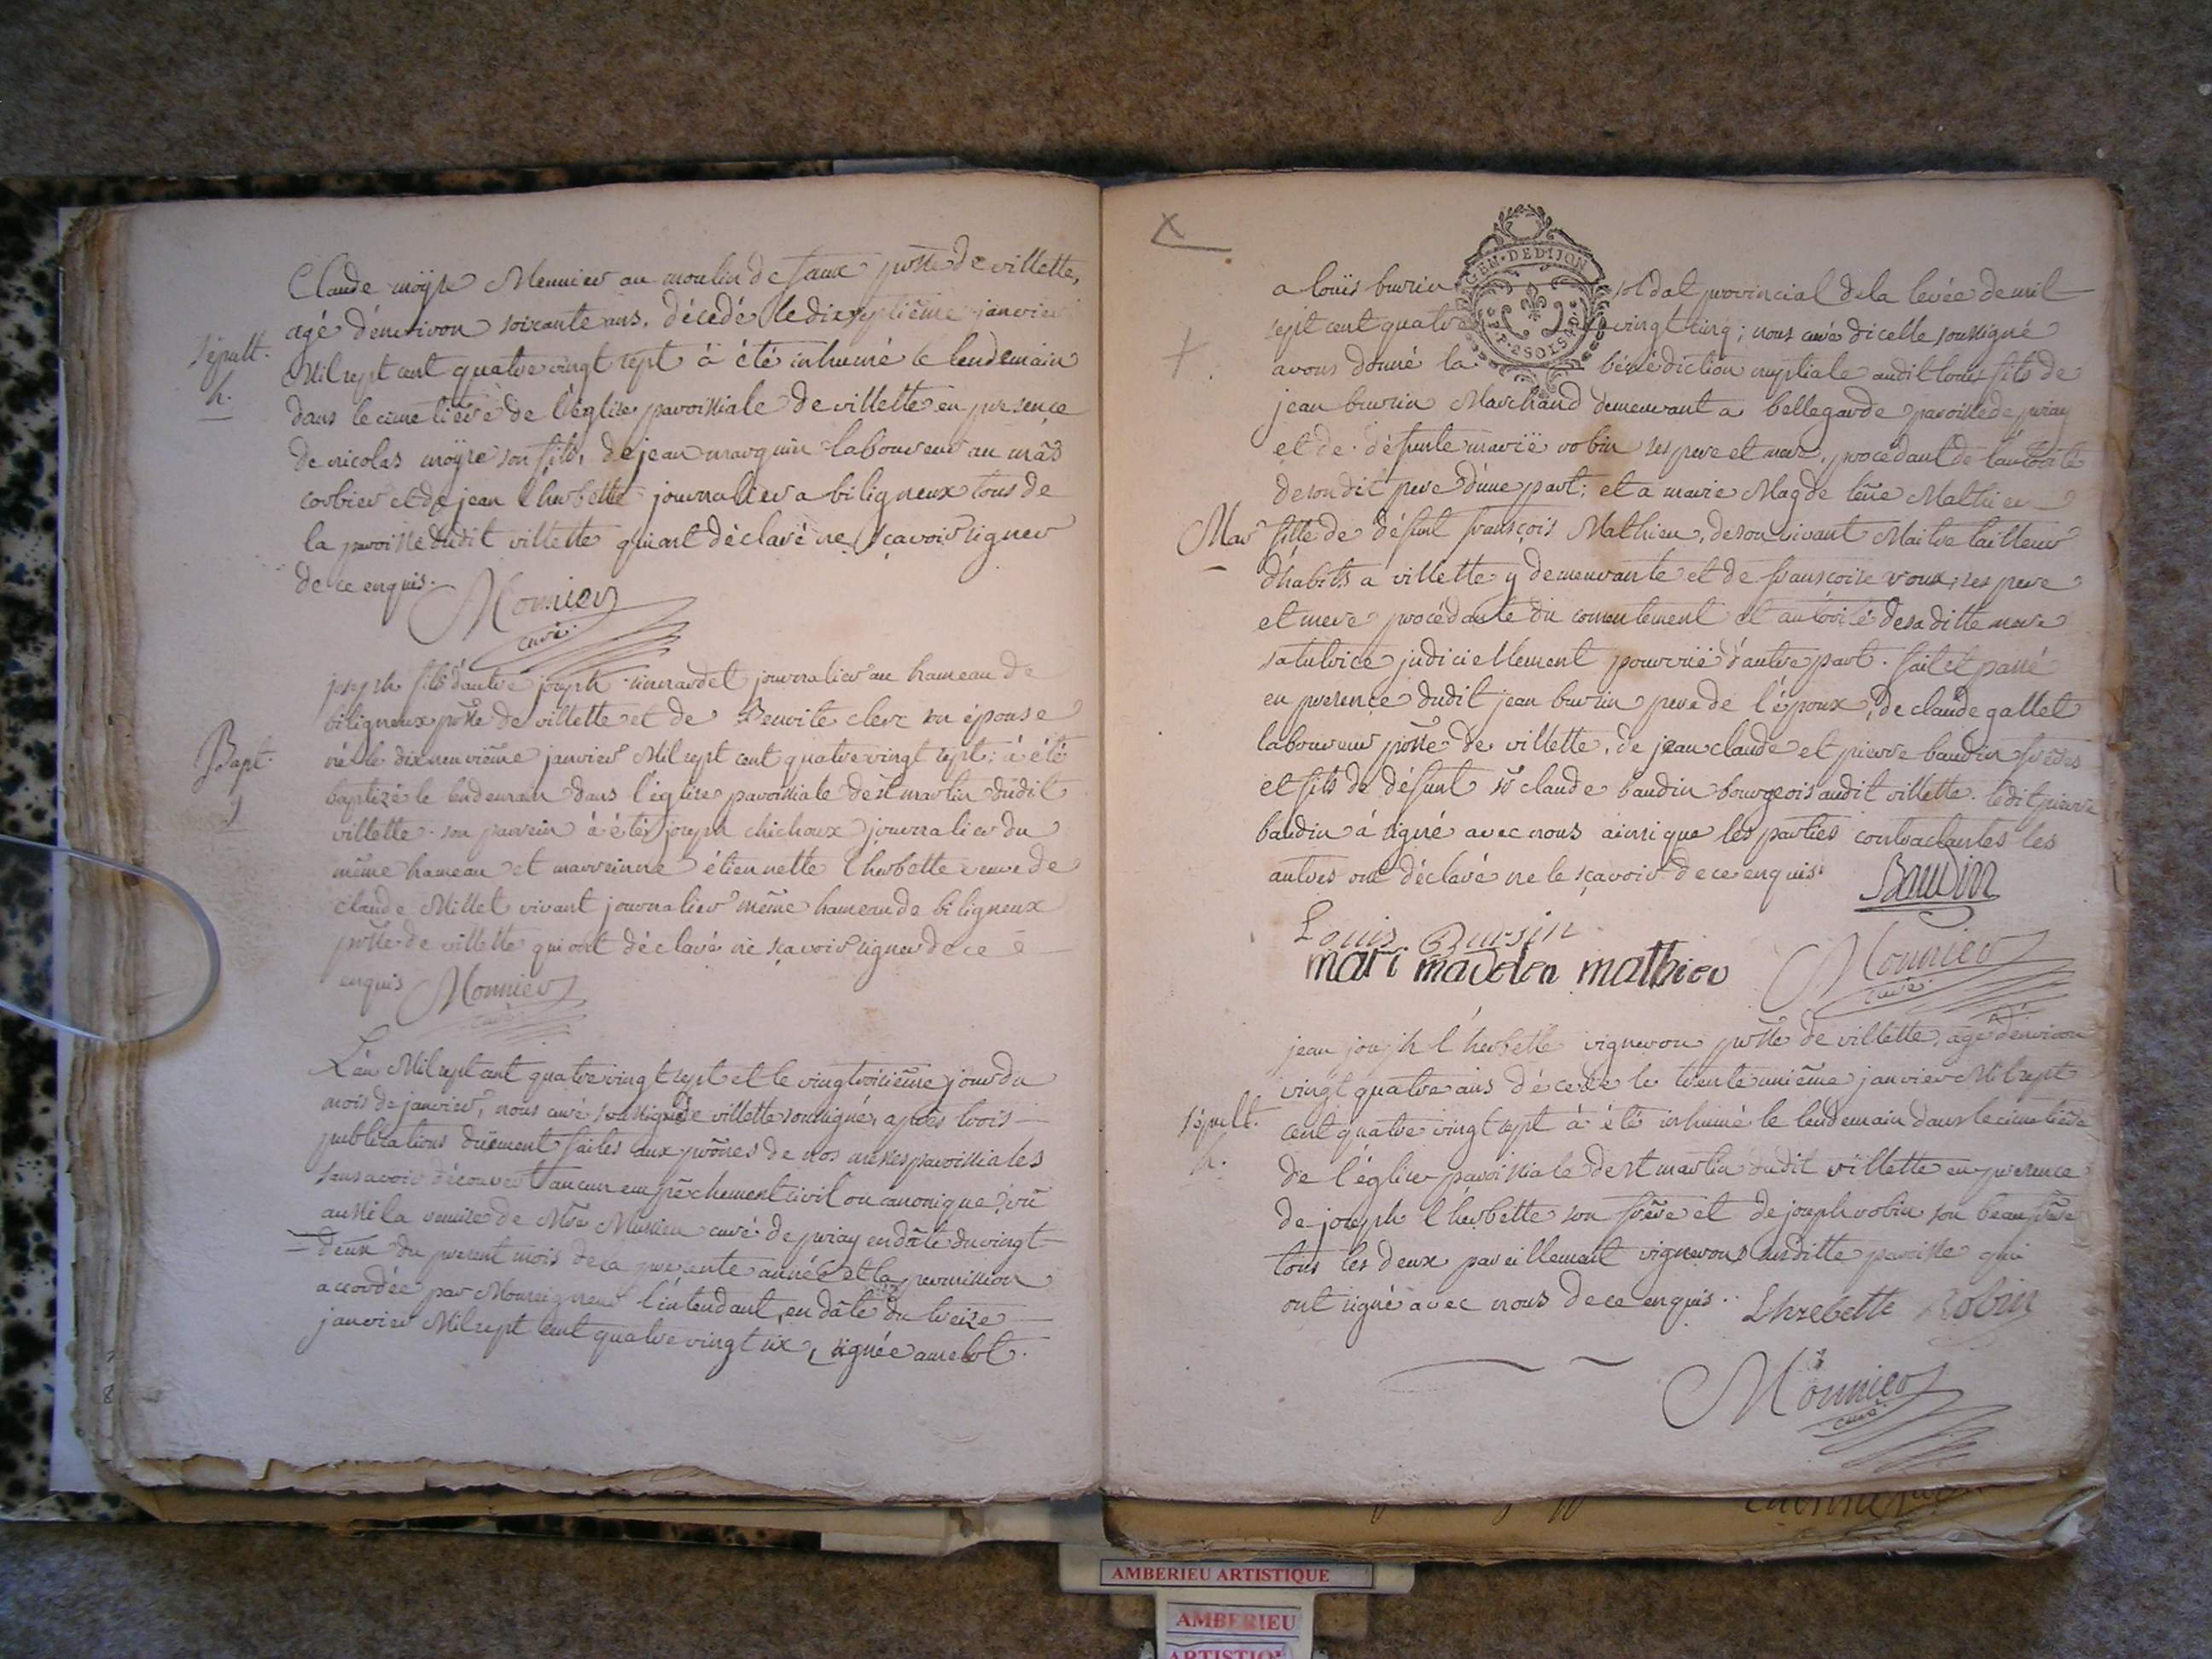 Claude moÿse Meunier au moulin de faux psse de villette,
agé d'environ soixante ans, décedé le dixseptième janvier
Mil sept cent quatre vingt sept à été inhumé le lendemain
Sépult.
h.
dans le cimetière de l'église paroissiale de villette en presence
de nicolas moÿse son fils, de jean marguin laboureur au mâs
corbier et de jean l'herbette journalier a biligneux tous de
la paroisse dudit villette qui ont déclaré ne sçavoir signer
de ce enquis.
Monnier
curé.
joseph fils d'autre joseph journalier au hameau de
biligneux psse de villette et de Benoite clerc son épouse
Bapt.
né le dixneuvième janvier Mil sept cent quatre vingt sept, à été
baptizé le lendemain dans l'église paroissiale de st martin dudit
villette. son parrein à été joseph chichoux journalier du
même hameau et marreinne étiennette l'herbette veuve de
claude Millet vivant journalier même hameau de biligneux
psse de villette qui ont déclaré ne sçavoir signer de ce
enquis Monnier
curé
L'an Mil sept cent quatre vingt sept et le vingt troisième jour du
mois de janvier, nous curé soussigné de villette soussigné, après trois
publications düement faites aux prônes de nos messes paroissiales
sans avoir découvert aucun empêchement civil ou canonique; vû
aussi la remise de Mre curé de priay en dâte du vingt
deux du present mois de la presente année et la permission
accordée par Monseigneur l'intendant, en dâte du treize
janvier Mil sept cent quatre vingt six, signée amelot.
X
GEN. DE DIJON
P. 2 SOLS
a loüis bursin soldat provincial de la levée de mil
sept cent quatre vingt cinq; nous curé d'icelle soussigné
+
avons donné la bénédiction nuptiale audit louis fils de
jean bursin Marchand demeurant a bellegarde paroisse de priay
et de défunte marie robin ses pere et mere, procédant de l'autorité
de son dit pere d'une part; et a marie Magdeleine Mathieu
Mar
fille de défunt françois Mathieu, de son vivant Maitre tailleur
d'habits a villette y demeurante et de françoise roux, ses pere
et mere procédante du consentement et autorité de sa ditte mere
sa tutrice judiciellement pourvüe d'autre part. fait et passé
en presence dudit jean bursin pere de l'époux, de claude gallet
laboureur psse de villette, de jean claude et pierre baudin frères
et fils de défunt sr claude baudin bourgeois audit villette. ledit pierre
baudin à signé avec nous ainsi que les parties contractantes les
autres ont déclaré ne le sçavoir de ce enquis.
Baudin
Louis Bursin
mari madelen mathieu
Monnier
curé.
jean joseph l'herbette vigneron psse de villette, agé d'environ
vingt quatre ans décedé le trente unième janvier Mil sept
Sépult.
h.
cent quatre vingt sept à été inhumé le lendemain dans le cimetière
de l'église paroissiale de st martin dudit villette en presence
de joseph l'herbette son frère et de joseph robin son beau frere
tous les deux pareillement vignerons susditte paroisse qui
ont signé avec nous de ce enquis.
Lhrebette Robin
Monnier
curé
AMBERIEU ARTISTIQUE
AMBERIEU
ARTISTIQUE